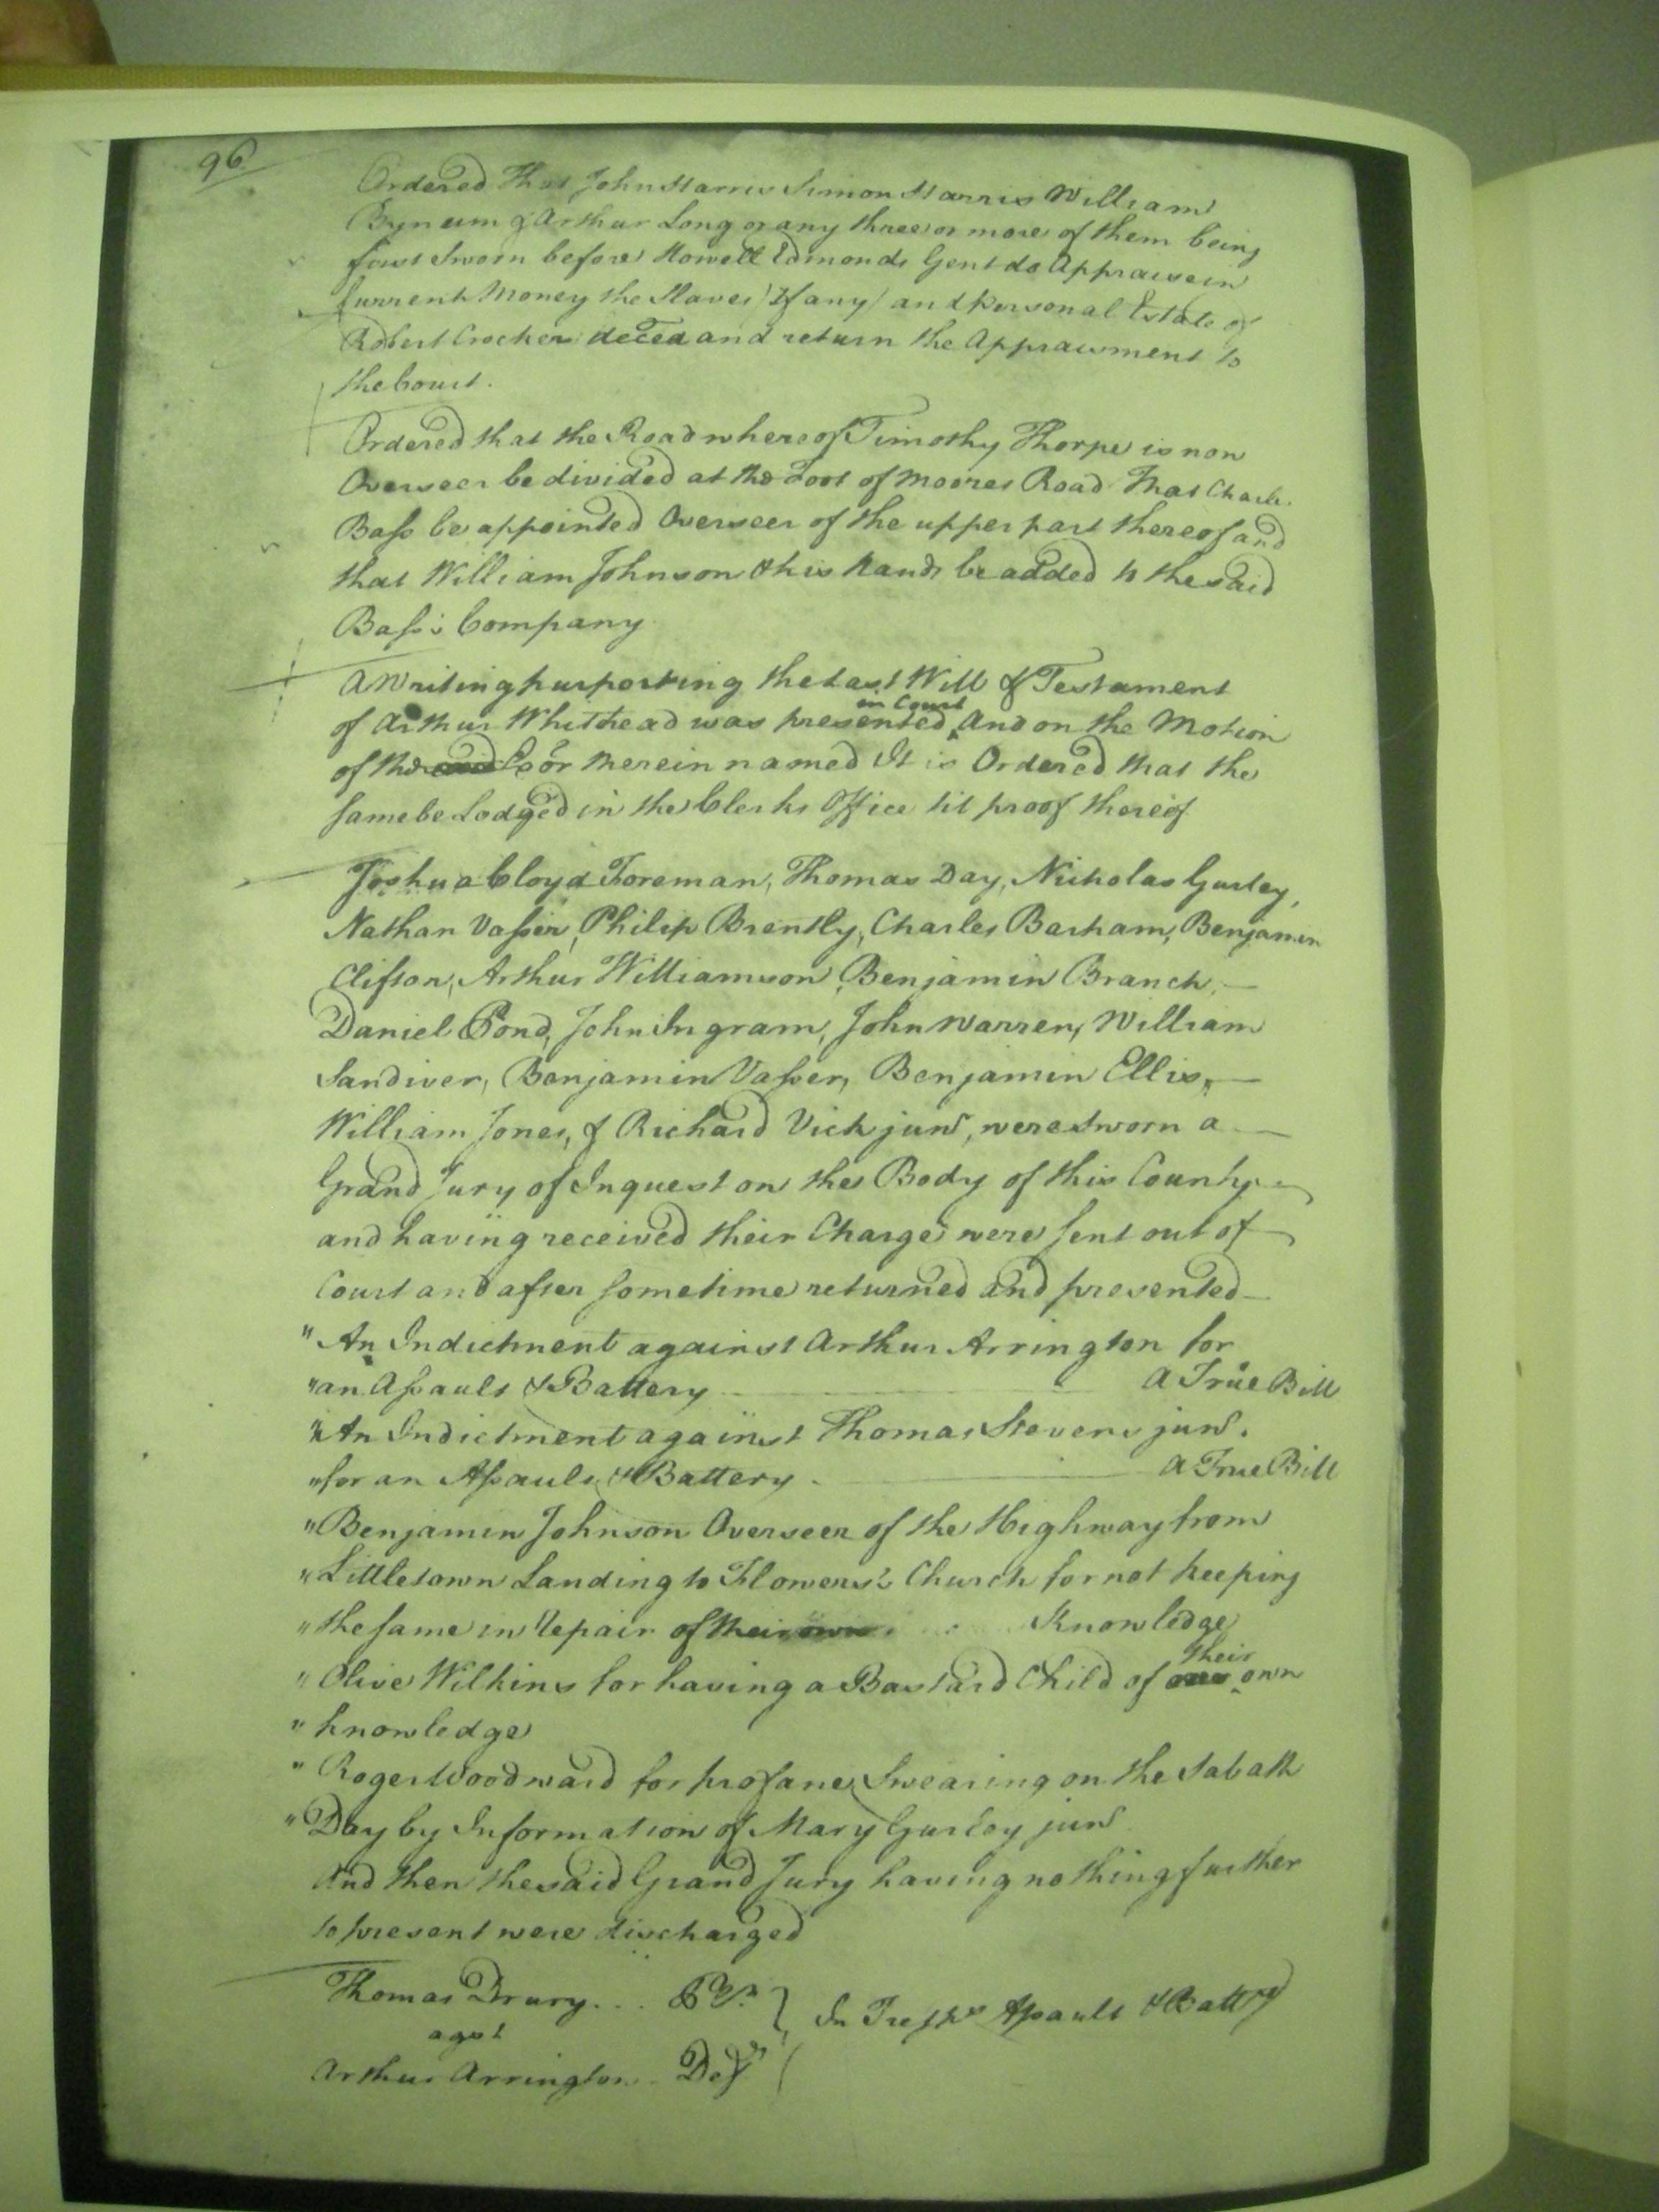 96
Ordered That John Harris Simon Harris William
Bynum & Arthur Long or any three or more of them being
first Sworn before Howell Edmonds Gent do Appraise in
Current Money the Slaves (If any) and Personal Estate of
Robert Crocker deced and return the Appraisment to
the Court.
Ordered that the Road whereof Timothy Thorpe is now
Overseer be divided at the Foot of Moores Road That Charles
Bass be appointed Overseer of the upper part thereof and
that William Johnson & his Hands be added to the said
Bass's Company
A Writing purporting the Last Will & Testament
in Court
of Arthur Whithead was presented And on the Motion
of the Exor therein named It is Ordered that the
same be Lodged in the Clerks Office til proof thereof
Joshua Cloyd Foreman, Thomas Day, Nicholas Gurley,
Nathan Vasser, Philip Brantly, Charles Barham, Benjamin
Clifton, Arthur Williamson, Benjamin Branch,
Daniel Pond, John Ingram, John Warren, William
Sandiver, Benjamin Vasser, Benjamin Ellis,
William Jones, & Richard Vick junr, were Sworn a
Grand Jury of Inquest on the Body of this County
and having received their Charge were sent out of
Court and after sometime returned and presented
" An Indictment against Arthur Arrington for
" an Assault & Battery A True Bill
" An Indictment against Thomas Stevens junr.
" for an Assault & Battery A True Bill
" Benjamin Johnson Overseer of the Highway from
" Littletown Landing to Flowers's Church for not keeping
" the same in Repair of their own Knowledge
their
" Olive Wilkins for having a Bastard Child of own
" knowledge
" Roger Woodward for profane Swearing on the Sabath
" Day by Information of Mary Gurley junr
And then the said Grand Jury having nothing further
to present were discharged
Thomas Drury Plt.
agst
In Tresps Assault & Battry
Arthur Arrington Deft